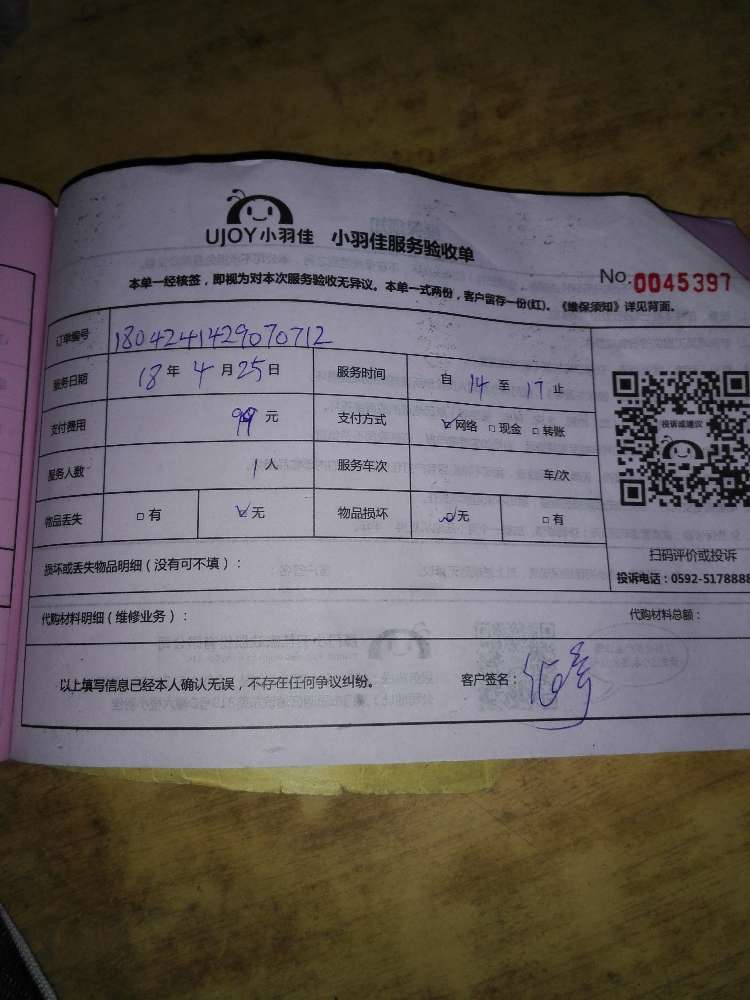 UJOY小羽佳 小羽佳服务验收单
No.0045397
本单一经核签，即视为对本次服务验收无异议。本单一式两份，客户留存一份(红)。《维保须知》详见背面。
订单编号 1804241429070712
服务日期 18年4月25日 服务时间 自14至17止
支付费用 99元 支付方式 ☑网络 □现金 □转账
服务人数 1人 服务车次 车/次
物品丢失 □有 ☑无 物品损坏 ☑无 □有
投诉或建议
扫码评价或投诉
投诉电话：0592-5178888
损坏或丢失物品明细（没有可不填）：
代购材料明细（维修业务）： 代购材料总额：
以上填写信息已经本人确认无误，不存在任何争议纠纷。 客户签名：